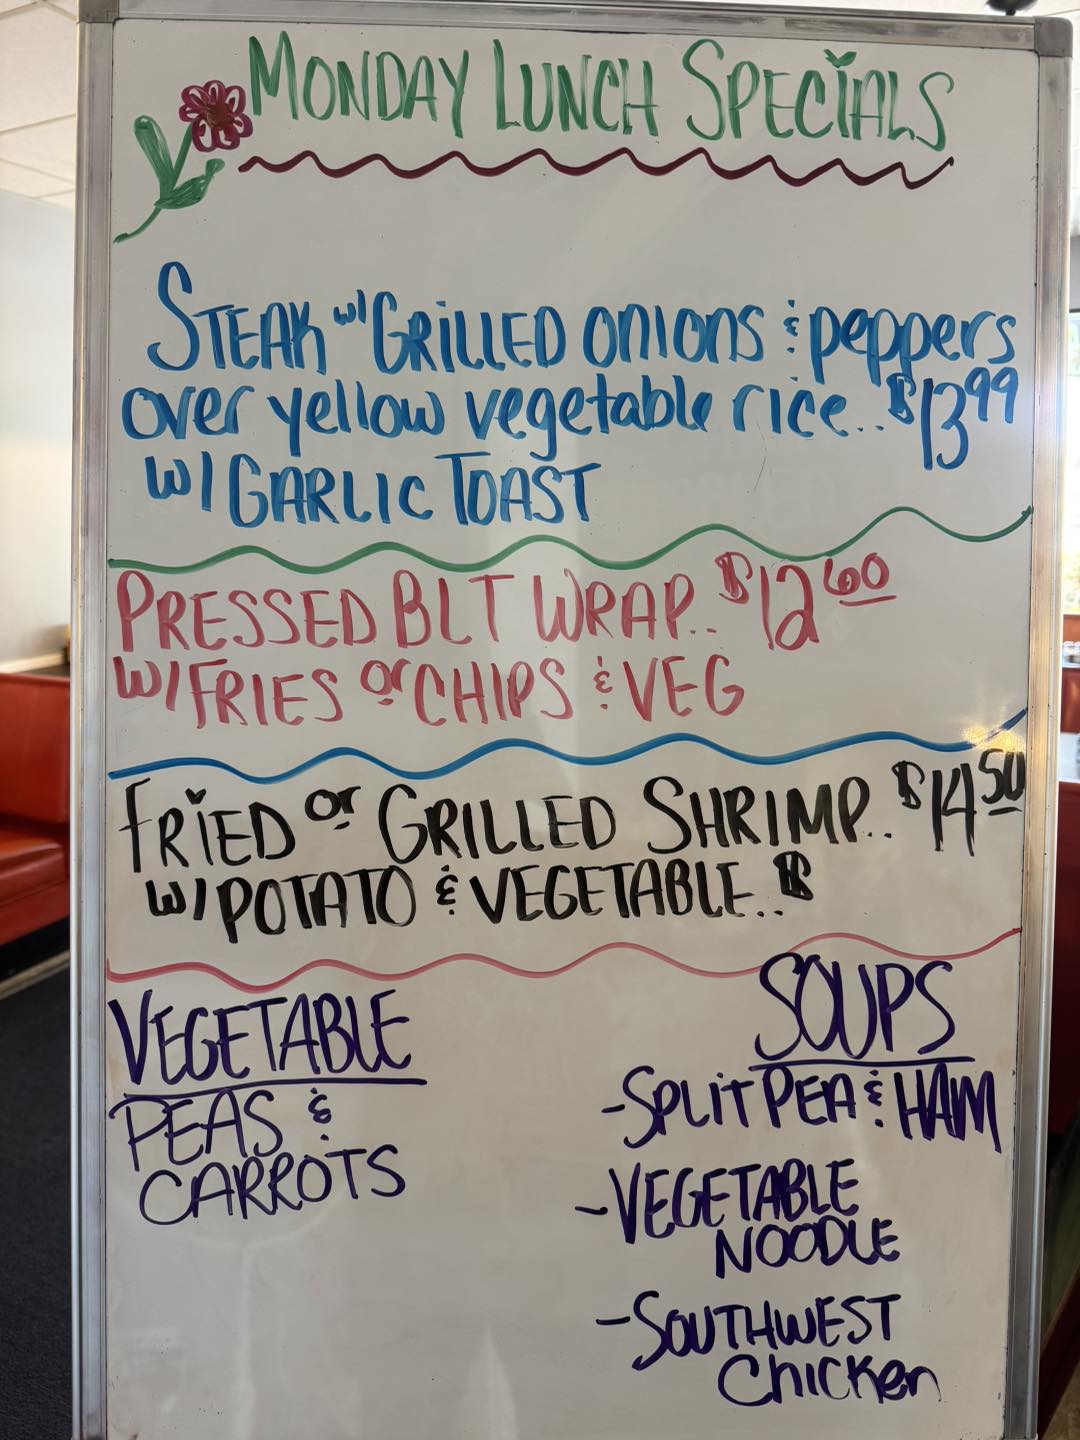 MONDAY LUNCH SPECIALS
STEAK w/ GRILLED ONIONS & peppers
over yellow vegetable rice.. $13.99
w/ GARLIC TOAST
PRESSED BLT WRAP.. $12.60
W/ FRIES or CHIPS & VEG
FRIED or GRILLED SHRIMP.. $14.50
w/ POTATO & VEGETABLE.. $
VEGETABLE
PEAS &
CARROTS
SOUPS
-SPLIT PEA & HAM
-VEGETABLE
NOODLE
-SOUTHWEST
Chicken